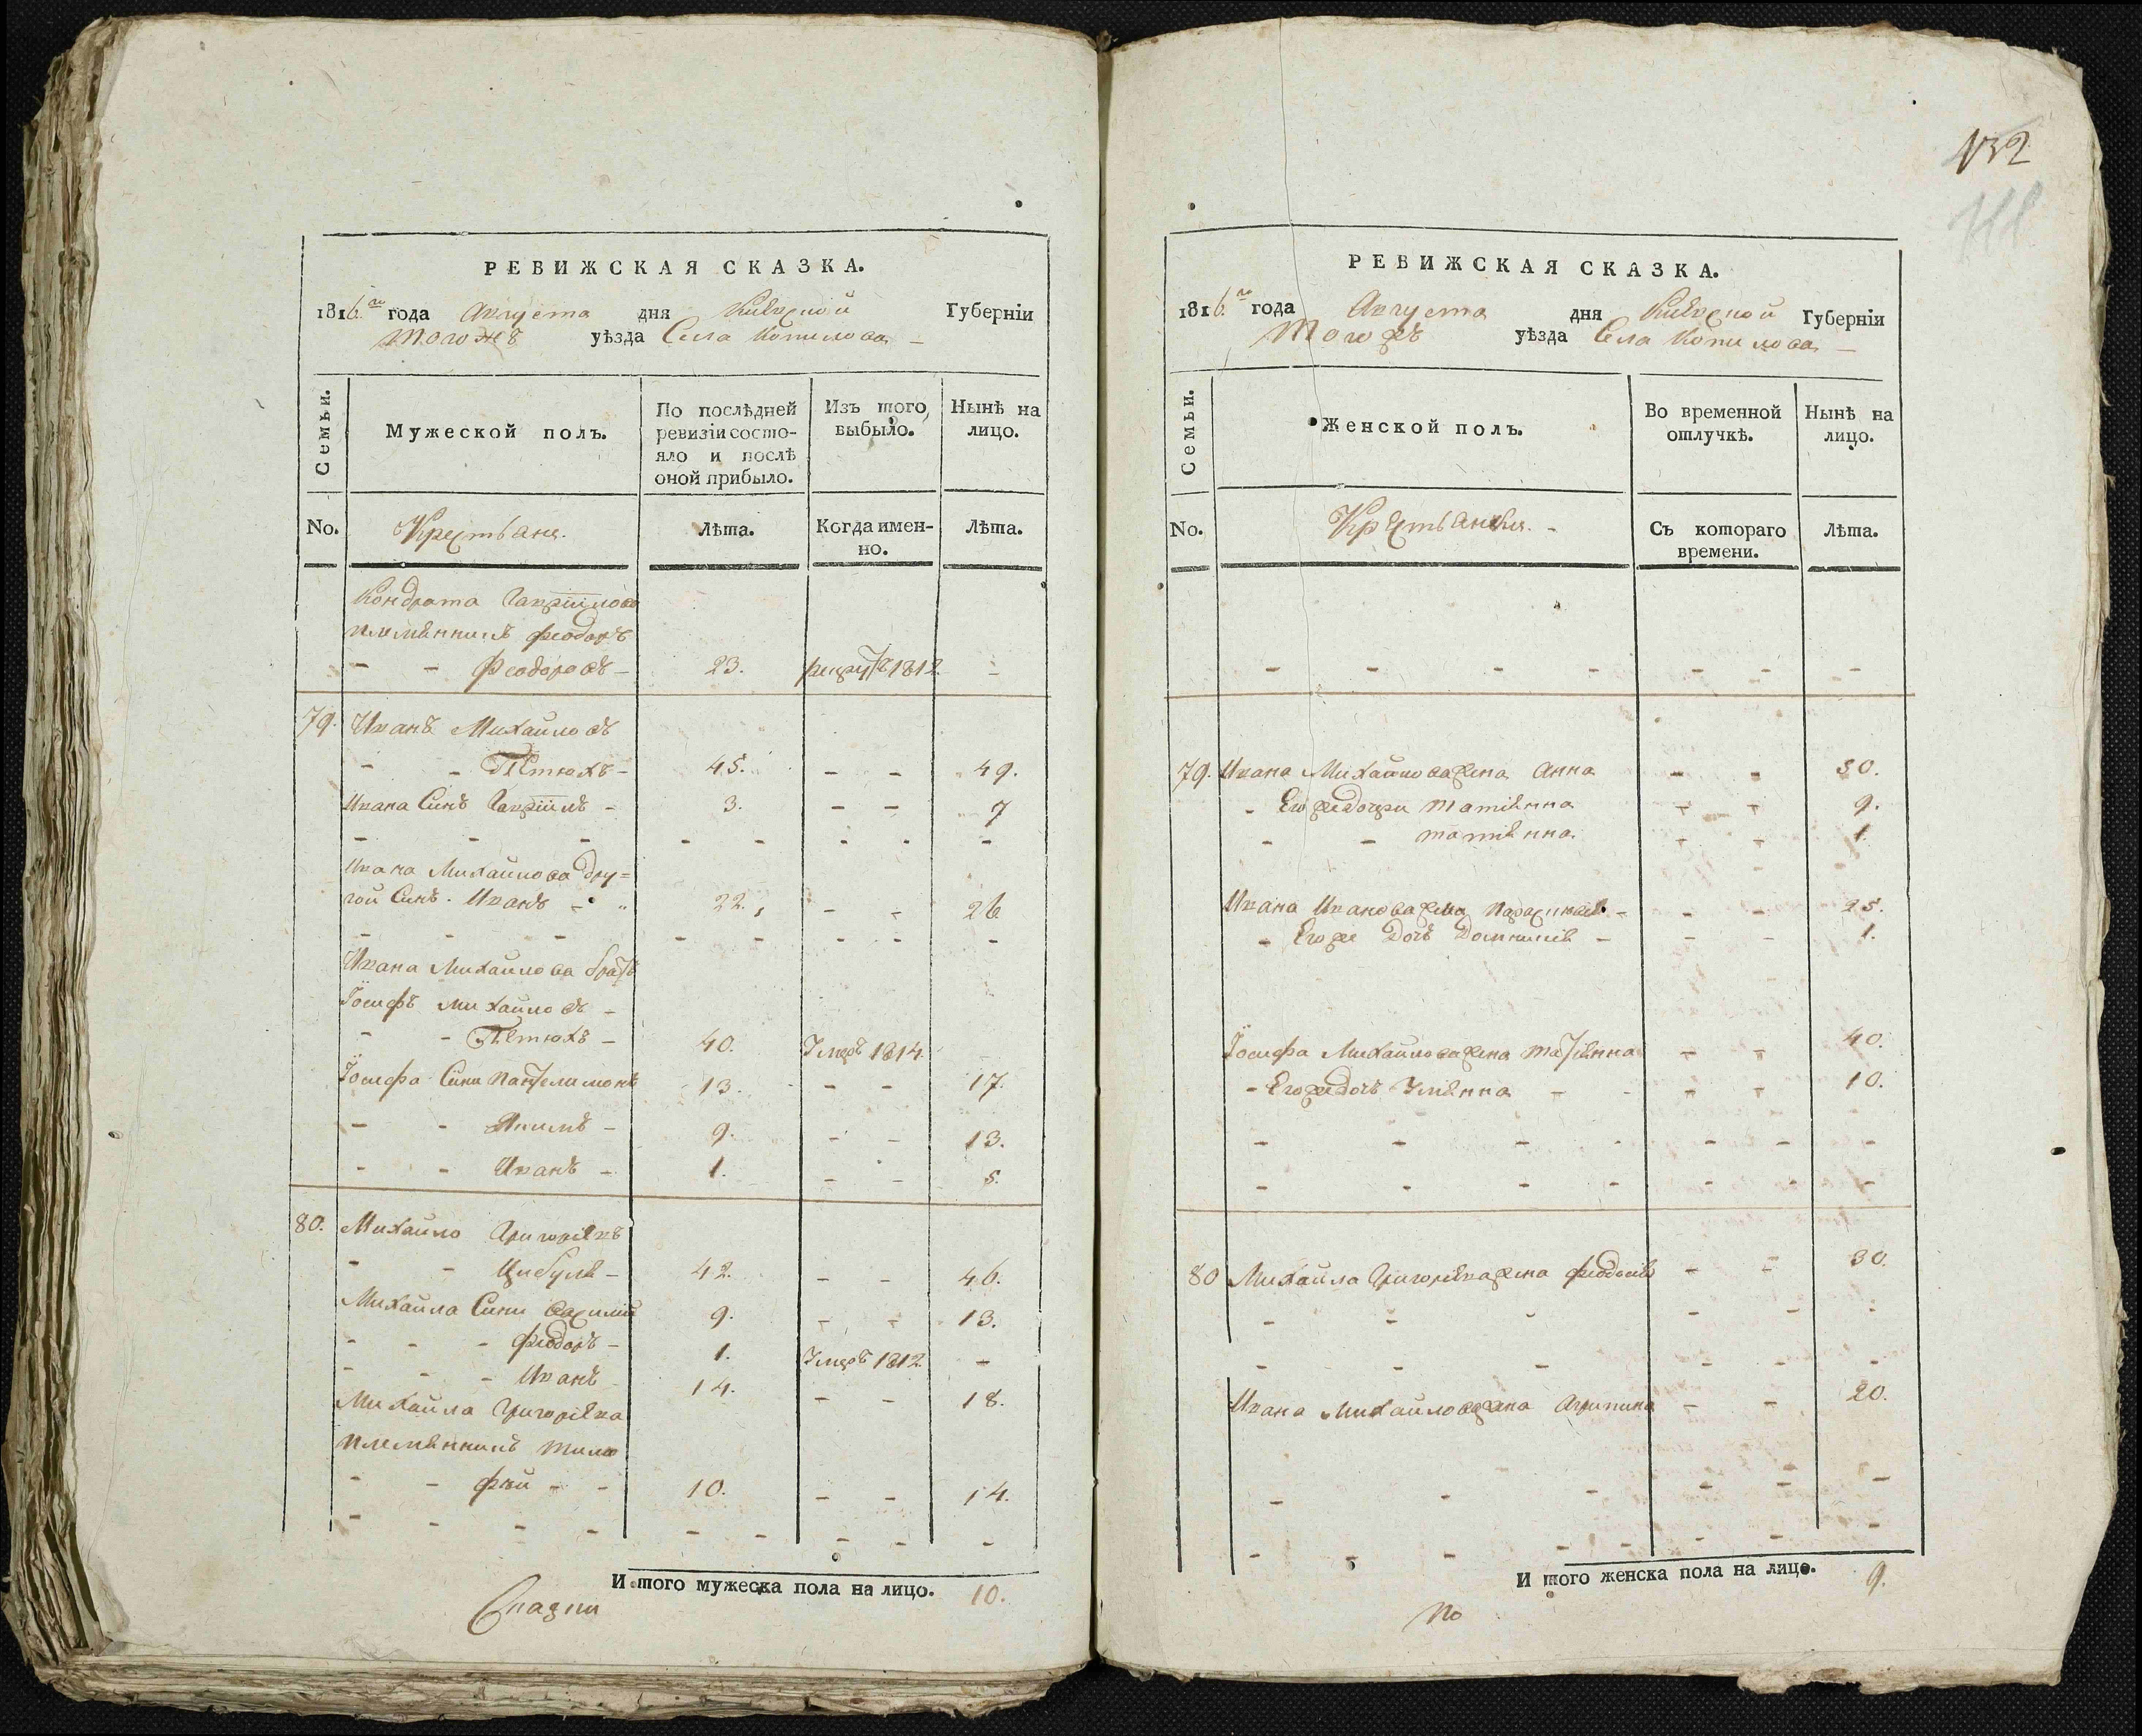 РЕВИЖСКАЯ СКАЗКА.
1816.го года Августа дня Киевской Губерніи
Тогожъ уѣзда Села Копилова
Семьи.
Мужеской полъ.
По послѣдней ревизіи состо-
яло и послѣ
оной прибыло.
Изъ того выбыло.
Нынѣ на лицо.
No.
Крестьяне.
Лѣта.
Когда имен-
но.
Лѣта.
Кондрата Гавріилова
племѣнникъ Феодоръ
Феодоровъ 23. рекрутъ 1812
79. Иванъ Михайловъ
Петюхъ 45. 49.
Ивана Синъ Гавріилъ 3. 7
Ивана Михайлова дру=
гой Синъ Иванъ 22. 26
Ивана Михайлова братъ
Іосифъ Михайловъ
Петюхъ 40. Умеръ 1814.
Іосифа Сини Пантелимонъ 13. 17.
Якимъ 9. 13.
Иванъ 1. 5.
80. Михайло Григоріевъ
Цибуля 42. 46.
Михайла Сини Василий 9. 13.
Феодоръ 1. Умеръ 1812.
Иванъ 14. 18.
Михайла Григоріева
племѣнникъ Тимо
фѣй 10. 14.
И того мужеска пола на лицо. 10.
132
РЕВИЖСКАЯ СКАЗКА.
1816.го года Августа дня Киевской Губерніи
Тогожъ уѣзда Села Копилова
Семьи.
Женской полъ.
Во временной
отлучкѣ.
Нынѣ на
лицо.
No.
Крестьянки.
Съ котораго
времени.
Лѣта.
79. Ивана Михайлова жена Анна 30.
Его же дочери Татіянна 9.
Татіянна 1.
Ивана Иванова жена 25.
Его же дочъ Домникія 1.
Іосифа Михайлова жена Татіянна 40.
Его же дочъ Уліянна 10.
80 Михайла Григоріева жена Феодосія 30.
Ивана Михайлова жена Агрипина 20.
И того женска пола на лицо. 9.
по